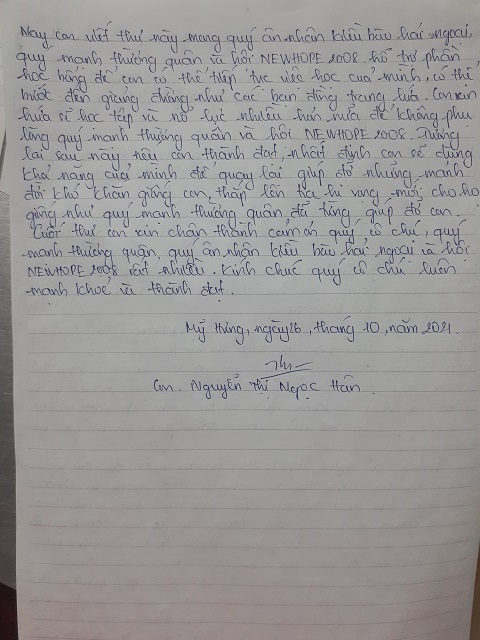 Nay con viết thư này mong quý ân nhân kiều bào hải ngoại,
quý mạnh thường quân và hội NEWHOPE 2008 hỗ trợ phần
học bổng để con có thể tiếp tục việc học của mình, có thể
bước đến giảng đường như các bạn đồng trang lứa. Con xin
hứa sẽ học tập và nỗ lực nhiều hơn nữa để không phụ
lòng quý mạnh thường quân và hội NEWHOPE 2008. Tương
lai sau này nếu con thành đạt, nhất định con sẽ dùng
khả năng của mình để quay lại giúp đỡ những mảnh
đời khó khăn giống con, thắp lên tia hi vọng mới cho họ
giống như quý mạnh thường quân đã từng giúp đỡ con.
Cuối thư con xin chân thành cảm ơn quý cô chú, quý
mạnh thường quân, quý ân nhân kiều bào hải ngoại và hội
NEWHOPE 2008 rất nhiều. Kính chúc quý cô chú luôn
mạnh khoẻ và thành đạt.
Mỹ Hưng, ngày 26, tháng 10, năm 2021
Con. Nguyễn Thị Ngọc Hân